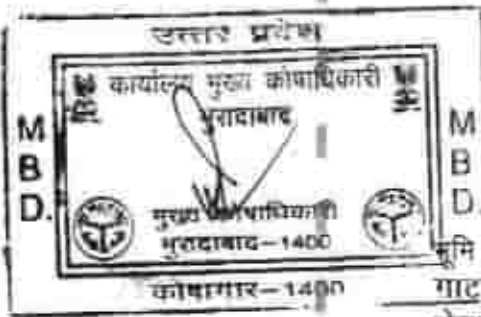 उत्तर प्रदेश
कार्यालय मुख्य कोषाधिकारी
मुरादाबाद
M
B
D.
M
B
D.
मुख्य कोषाधिकारी
मुरादाबाद-1400
कोषागार-1400
भूमि
गाट